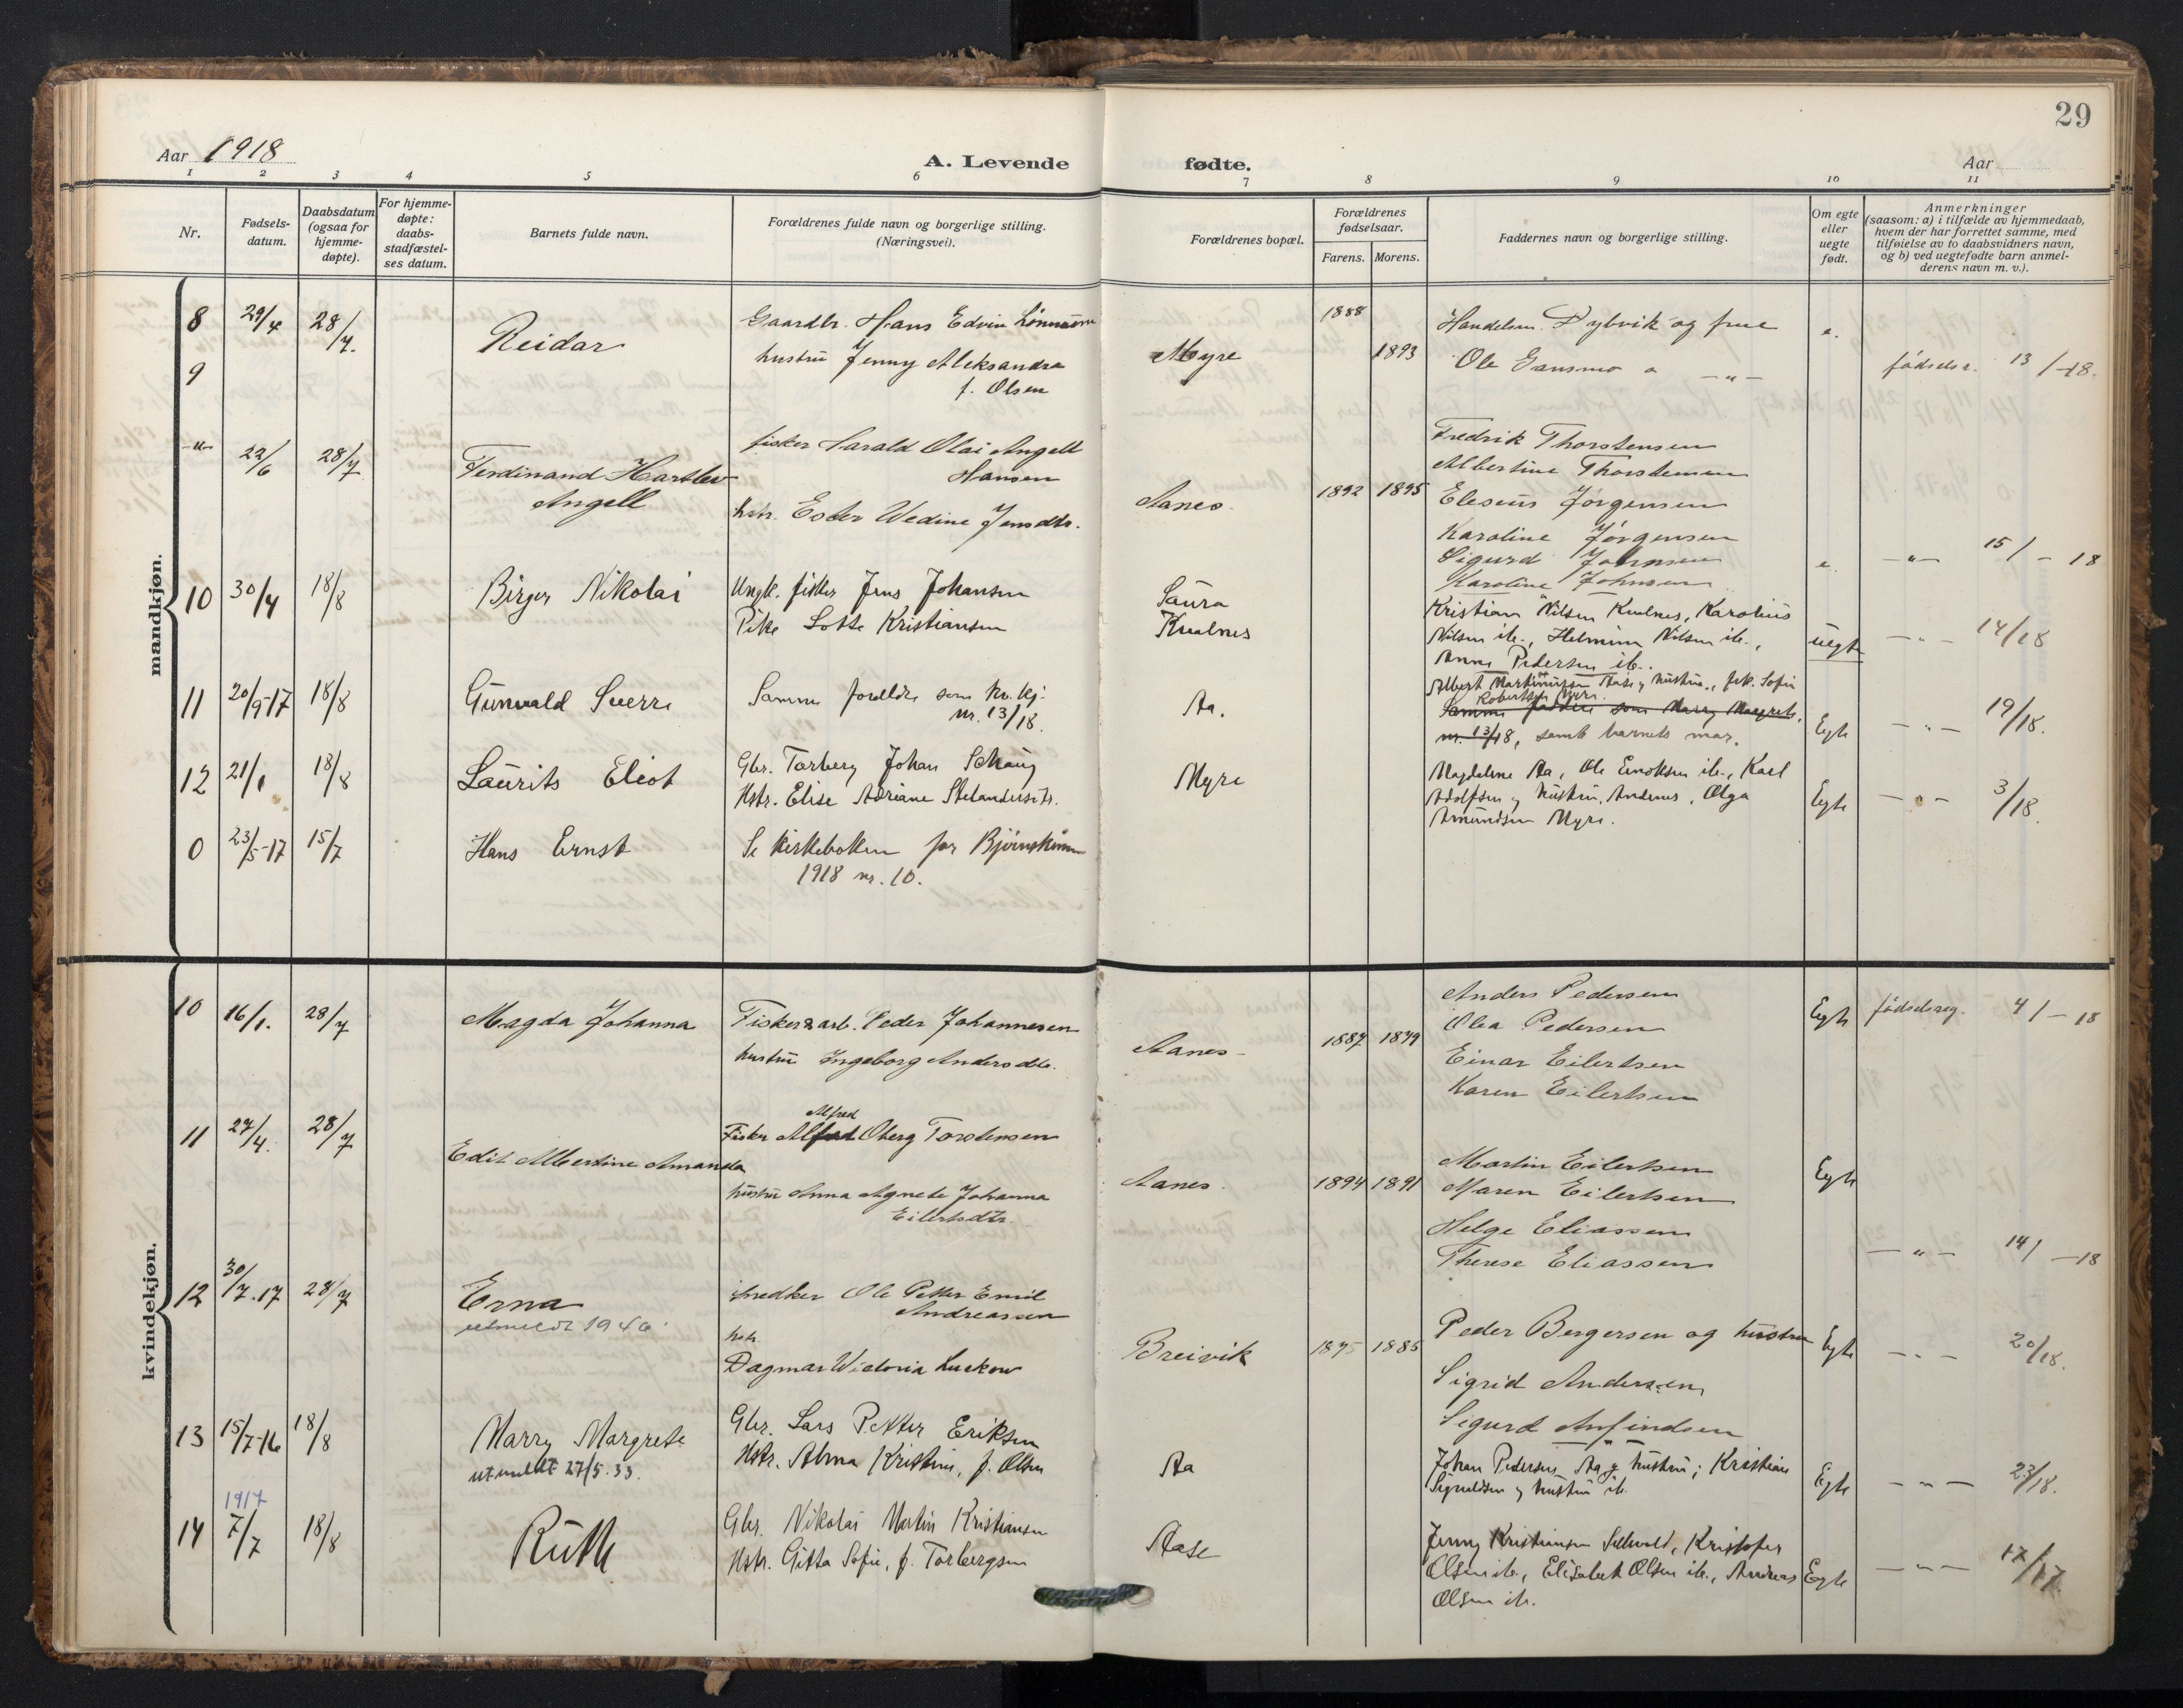 29
Aar 1918
A. Levende fødte.
Aar
1 2 3 4 5 6 7 8 9 10 11
Nr.
Fødsels-
datum.
Daabsdatum
(ogsaa for
hjemme-
døpte).
For hjemme-
døpte:
daabs-
stadfæstel-
ses datum.
Barnets fulde navn.
Forældrenes fulde navn og borgerlige stilling.
(Næringsvei).
Forældrenes bopæl.
Forældrenes
fødselsaar.
Farens. Morens.
Faddernes navn og borgerlige stilling.
Om egte
eller
uegte
født.
Anmerkninger
(saasom: a) i tilfælde av hjemmedaab,
hvem der har forrettet samme, med
tilføielse av to daabsvidners navn,
og b) ved uegtefødte barn anmel-
derens navn m. v.).
mandkjøn.
8 29/4 28/7. Reidar
Gaardbr. Hans Edvin
hustru Jenny Aleksandra
f. Olsen
Myre 1888 1893
Handelsm. Dybvik og frue
Ole Gansmo o —"—
e. fødselsr. 13/-18.
9
-"- 22/6 28/7 Ferdinand Hartlev
Angell
fisker Harald Olai Angell
Hansen
hstr. Ester Wedine Jensdtr.
Aanes. 1892 1895
Fredrik Thorstensen
Albertine Thorstensen
Eleseus Jørgensen
Karoline Jørgensen
Sigurd Johnsen
Karoline Johnsen
e. —"— 15/-18
10 30/4 18/8 Birger Nikolai
Ungk. fisker Jens Johansen
Pike Lotte Kristiansen
Saura
Kvalnes
Kristian Nilsen Kvalnes, Karolius
Nilsen ib., Helmine Nilsen ib.,
Anna Pedersen ib.
uegte —"— 14/18
11 20/9-17 18/8 Gunvald Sverre
Samme foreldre som kv. kj.
nr. 13/18.
Aa.
Albert Martinussen Aase og hustru, frk. Sofie
Robertsen Myre.
Samme faddere som Marry Margrete,
nr. 13/18, samt barnets mor.
Egte —"— 19/18.
12 21/1 18/8 Laurits Eliot
Gbr. Torberg Johan Schaug
Hstr. Elise Adriane
Myre
Magdalene Aa, Ole Enoksen ib., Karl
Adolfsen og hustru, Andenes, Olga
Amundsen Myre.
Egte —"— 3/18.
0 23/5-17 15/7 Hans Ernst
Se kirkeboken for Bjørnskinn
1918 nr. 10.
kvindekjøn.
10 16/1. 28/7 Magda Johanna
Fisker & arb. Peder Johannesen
hustru Ingeborg Andersdtr.
Aanes 1887 1879
Anders Pedersen
Olea Pedersen
Einar Eilertsen
Karen Eilertsen
Egte fødselsreg. 4/-18
11 27/4. 28/7 Edit Albertine Amanda
Alfred
Fisker Alfred Oberg Torstensen
hustru Anna Agnete Johanna
Eilertsdtr.
Aanes. 1894 1891
Martin Eilertsen
Maren Eilertsen
Helge Eliassen
Therese Eliassen
Egte —"— 14/-18
12 30/7.17 28/7 Erna
utmeldt 1946
snedker Ole Petter Emil
Andreassen
hstr.
Dagmar Wictoria Luckow
Breivik 1895 1885
Peder Bergersen og hustru
Sigrid Andersen
Sigurd Arfindsen
Egte —"— 20/18.
13 15/7-16 18/8 Marry Margrete
utmeldt 27/5.33.
Gbr. Lars Petter Eriksen
Hstr. Alma Kristine, f. Olsen
Aa
Johan Pedersen, Aa og hustru; Kristian
Sigvaldsen og hustru ib.
Egte —"— 23/18.
14 1917 7/7 18/8 Ruth
Gbr. Nikolai Martin Kristiansen
Hstr. Gitta Sofie, f. Torbergsen
Aase
Jenny Kristiansen Sellevold, Kristofer
Olsen ib., Elisabet Olsen ib., Andreas
Olsen ib.
Egte —"— 17/17.